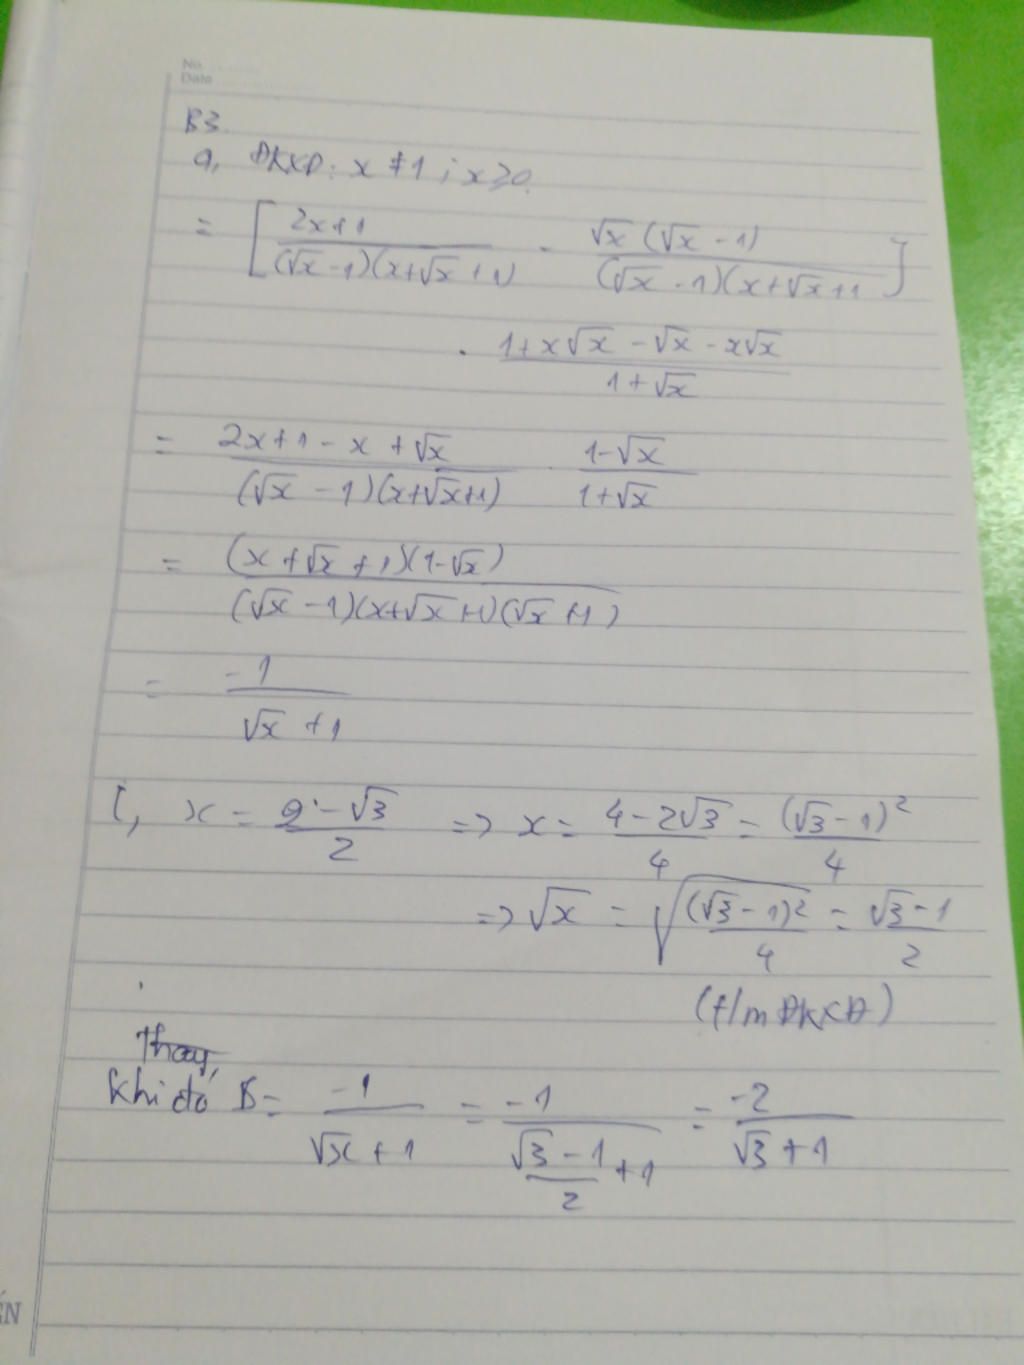 No.
Date
B3.
a, ĐKXĐ: x ≠ 1 ; x ≥ 0.
= [ (2x+1)/((√x-1)(x+√x+1)) - (√x(√x-1))/((√x-1)(x+√x+1) ]
. (1+x√x-√x-x√x)/(1+√x)
= (2x+1-x+√x)/((√x-1)(x+√x+1)) . (1-√x)/(1+√x)
= ((x+√x+1)(1-√x))/((√x-1)(x+√x+1)(√x+1))
= -1/(√x+1)
x = (2-√3)/2 => x = (4-2√3)/4 = (√3-1)²/4
=> √x = √((√3-1)²/4) = (√3-1)/2
(t/m ĐKXĐ)
Thay,
Khi đó B = -1/(√x+1) = -1/((√3-1)/2+1) = -2/(√3+1)